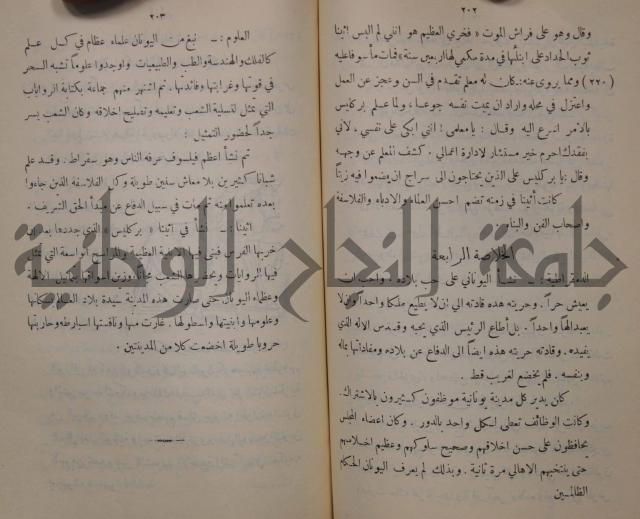 ٢٠٢
وقال وهو على فراش الموت « فخري العظيم هو انني لم البس اثينا
ثوب الحداد على ابنائها في مدة حكمي لها اربعين سنة » فمات مأسوفا عليه
(٢٢٠) ومما يروى عنه: كان له معلم تقدم في السن وعجز عن العمل
واعتزل في محله واراد ان يميت نفسه جوعا، ولما علم بركليس
بالامر اسرع اليه وقال : يا معلمي! انني ابكي على نفسي، لاني
بفقدك احرم خير مستشار لادارة اعمالي . كشف المعلم عن وجهه
وقال : يا بركليس على الذين يحتاجون الى سراج ان يضعوا فيه زيتا
كانت أثينا في زمنه تضم احسن العلماء والادباء والفلاسفة
واصحاب الفن والبناء .
الخلاصة الرابعة
الديمقراطية : ـ نشأ اليوناني على حب بلاده . واحب ان
يعيش حراً . وحريته هذه قادته الى ان لا يطيع ملكا واحداً وان لا
يعبد الهاً واحداً . بل أطاع الرئيس الذي يحبه وقدس الاله الذي
يفيده . وقادته حريته هذه ايضاً الى الدفاع عن بلاده ومفاداتها بماله
وبنفسه . فلم يخضع لغريب قط .
كان يدير كل مدينة يونانية موظفون كثيرون بالاشتراك.
وكانت الوظائف تعطى لكل واحد بالدور . وكان اعضاء المجلس
يحافظون على حسن اخلاقهم وصحيح سلوكهم وعظيم اخلاصهم
حتى ينتخبهم الاهالي مرة ثانية . وبذلك لم يعرف اليونان الحكام
الظالمين
٢٠٣
العلوم : ـ نبغ من اليونان علماء عظام في كل علم
كالفلك والهندسة والطب والطبيعيات واوجدوا علوماً تشبه السحر
في قوتها وغرابتها وفائدتها . ثم اشتهر منهم جماعة بكتابة الروايات
التي تمثل لتسلية الشعب وتعليمه وتصليح اخلاقه وكان الشعب يسر
جداً لحضور التمثيل :
ثم نشأ اعظم فيلسوف عرفه الناس وهو سقراط . وقد علم
شبانا كثيرين بلا معاش سنين طويلة وكل الفلاسفة الذين جاءوا
بعده تعلموا منه ثم مات في سبيل الدفاع عن مبدأ الحق الشريف .
اثينا : ـ نشأ في اثينا « بركليس » الذي جددها بعد ان
خربها الفرس فبنى فيها الابنية العظيمة والمراسح الواسعة التي تمثل
فيها الروايات ويحضرها الشعب مجانا وزين اسواقها بتماثيل الآلهة
وعظماء اليونان حتى صارت هذه المدينة سيدة بلاد العالم بسكانها
وعلومها وابنيتها واسطولها . غارت منها ونافستها اسبارطة وحاربتها
حروبا طويلة اخضعت كلا من المدينتين .
جامعة النجاح الوطنية